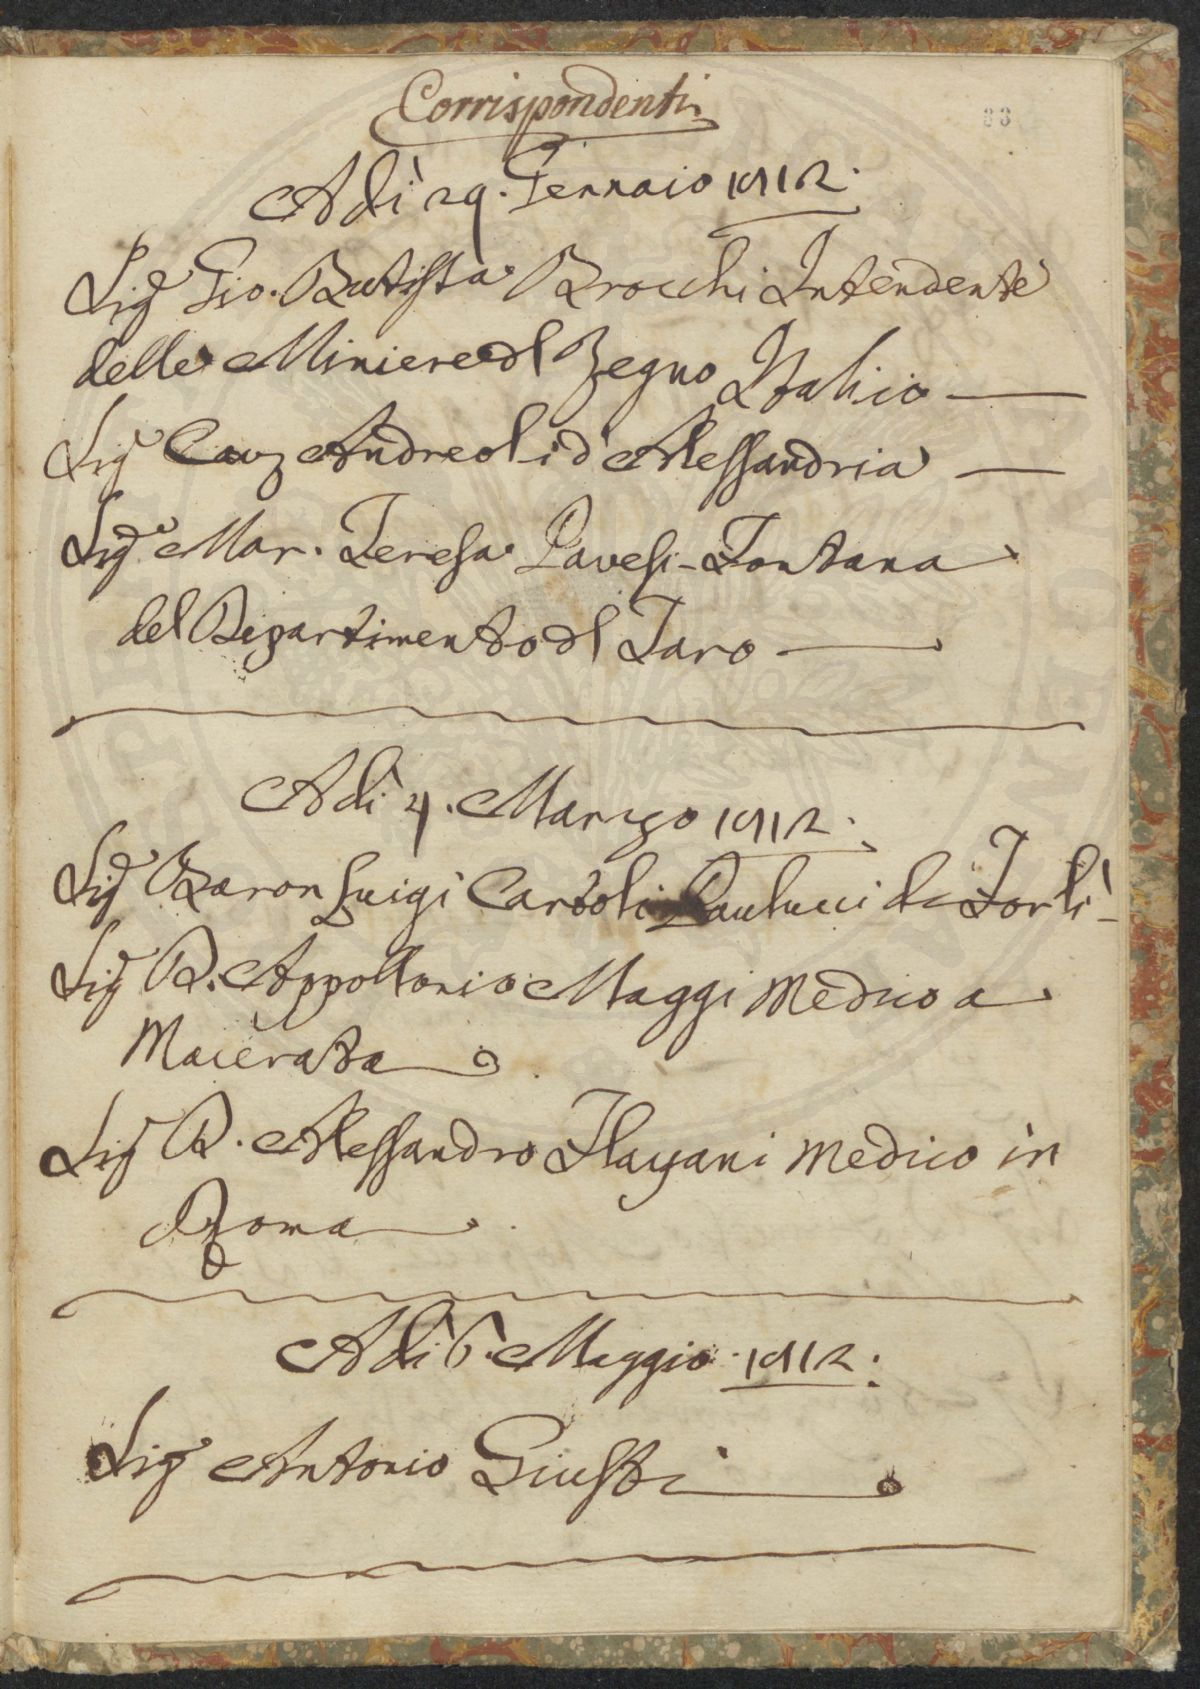 Corrispondenti
88
Adì 29. Gennaio 1812.
Sigr Gio. Batista Brocchi Intendente
delle Miniere dl Regno Italico
Sigr Cav Andreoli d' Alessandria
Siga Mar. Teresa Pavesi-Fontana
del Dipartimento dl Taro
Adì 4. Marzo 1812.
Sigr Baron Luigi Paulucci da Forlì
Sigr D. Appollonio Maggi Medico a
Macerata
Sigr D. Alessandro Flajani Medico in
Roma
Adì 6. Maggio 1812.
Sigr Antonio Giusti